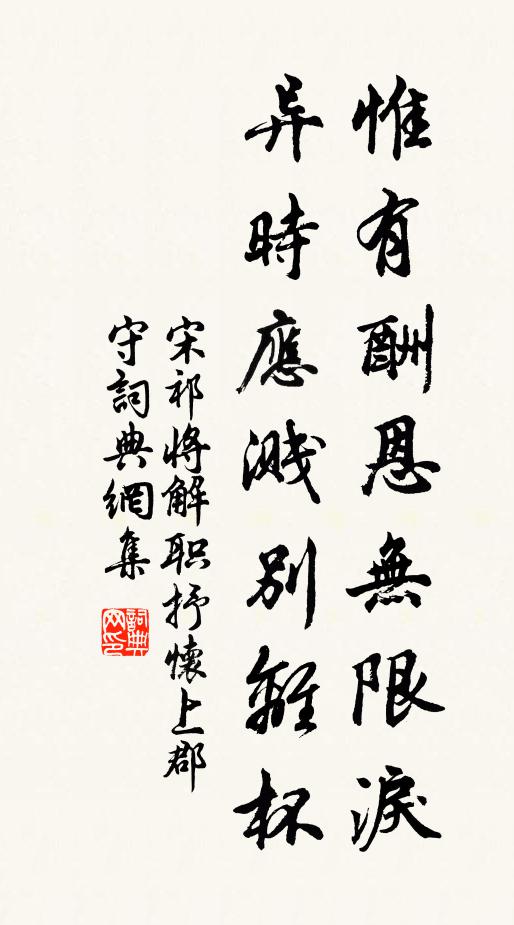 惟有酬恩無限淚
异時應濺別離杯
宋祁將解职抒懷上郡
守詞典網集
詞典
网印